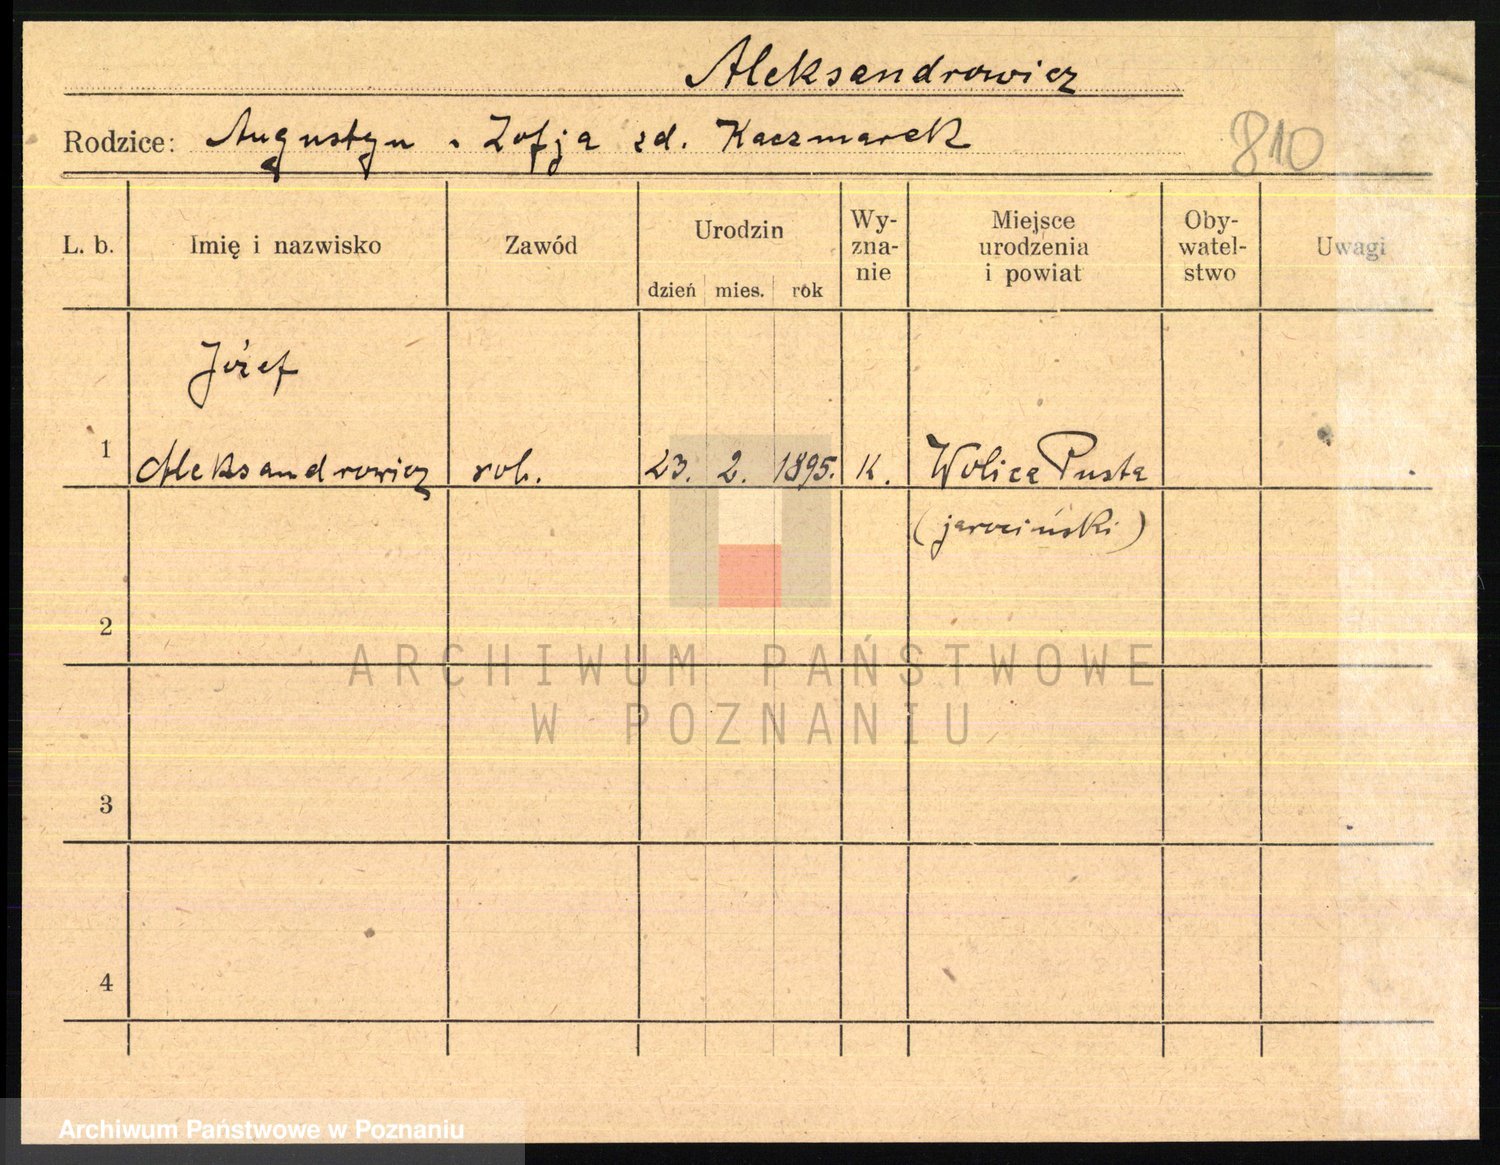 Aleksandrowicz
Rodzice: Augustyn i Zofja zd. Kaczmarek
810
L. b. Imię i nazwisko Zawód Urodzin dzień mies. rok Wy-zna-nie Miejsce urodzenia i powiat Oby-watel-stwo Uwagi
Józef
1 Aleksandrowicz rob. 23. 2. 1895. k. Wolica Pusta
(jarociński)
2
ARCHIWUM PAŃSTWOWE
W POZNANIU
3
4
Archiwum Państwowe w Poznaniu